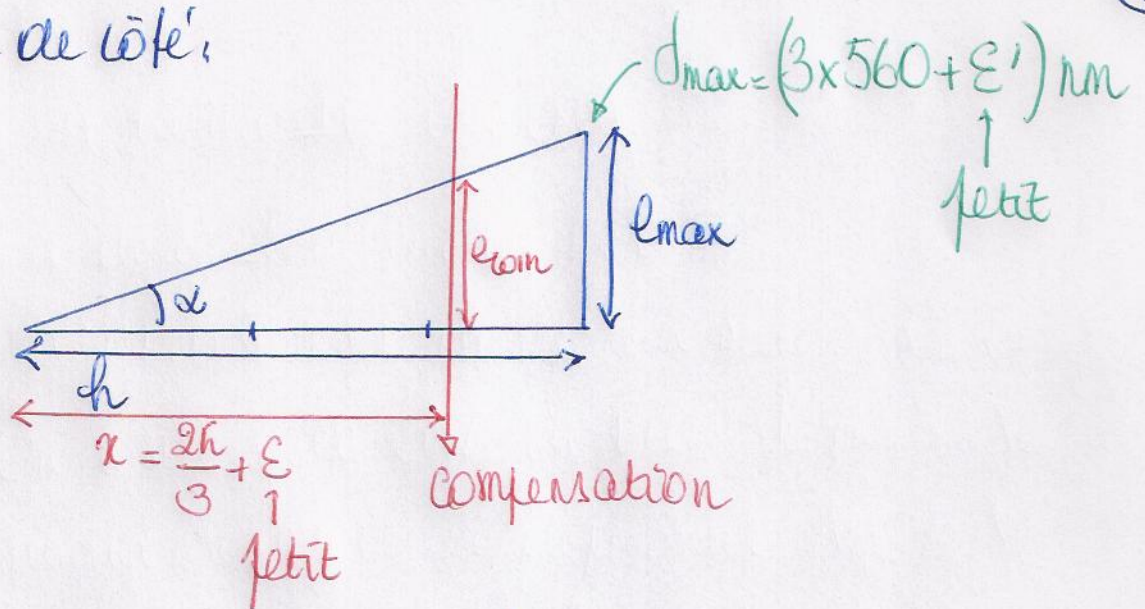 de côté.
dmax = (3x560 + ε') nm
↑
petit
α
ecom
emax
h
x = 2h/3 + ε
petit
compensation